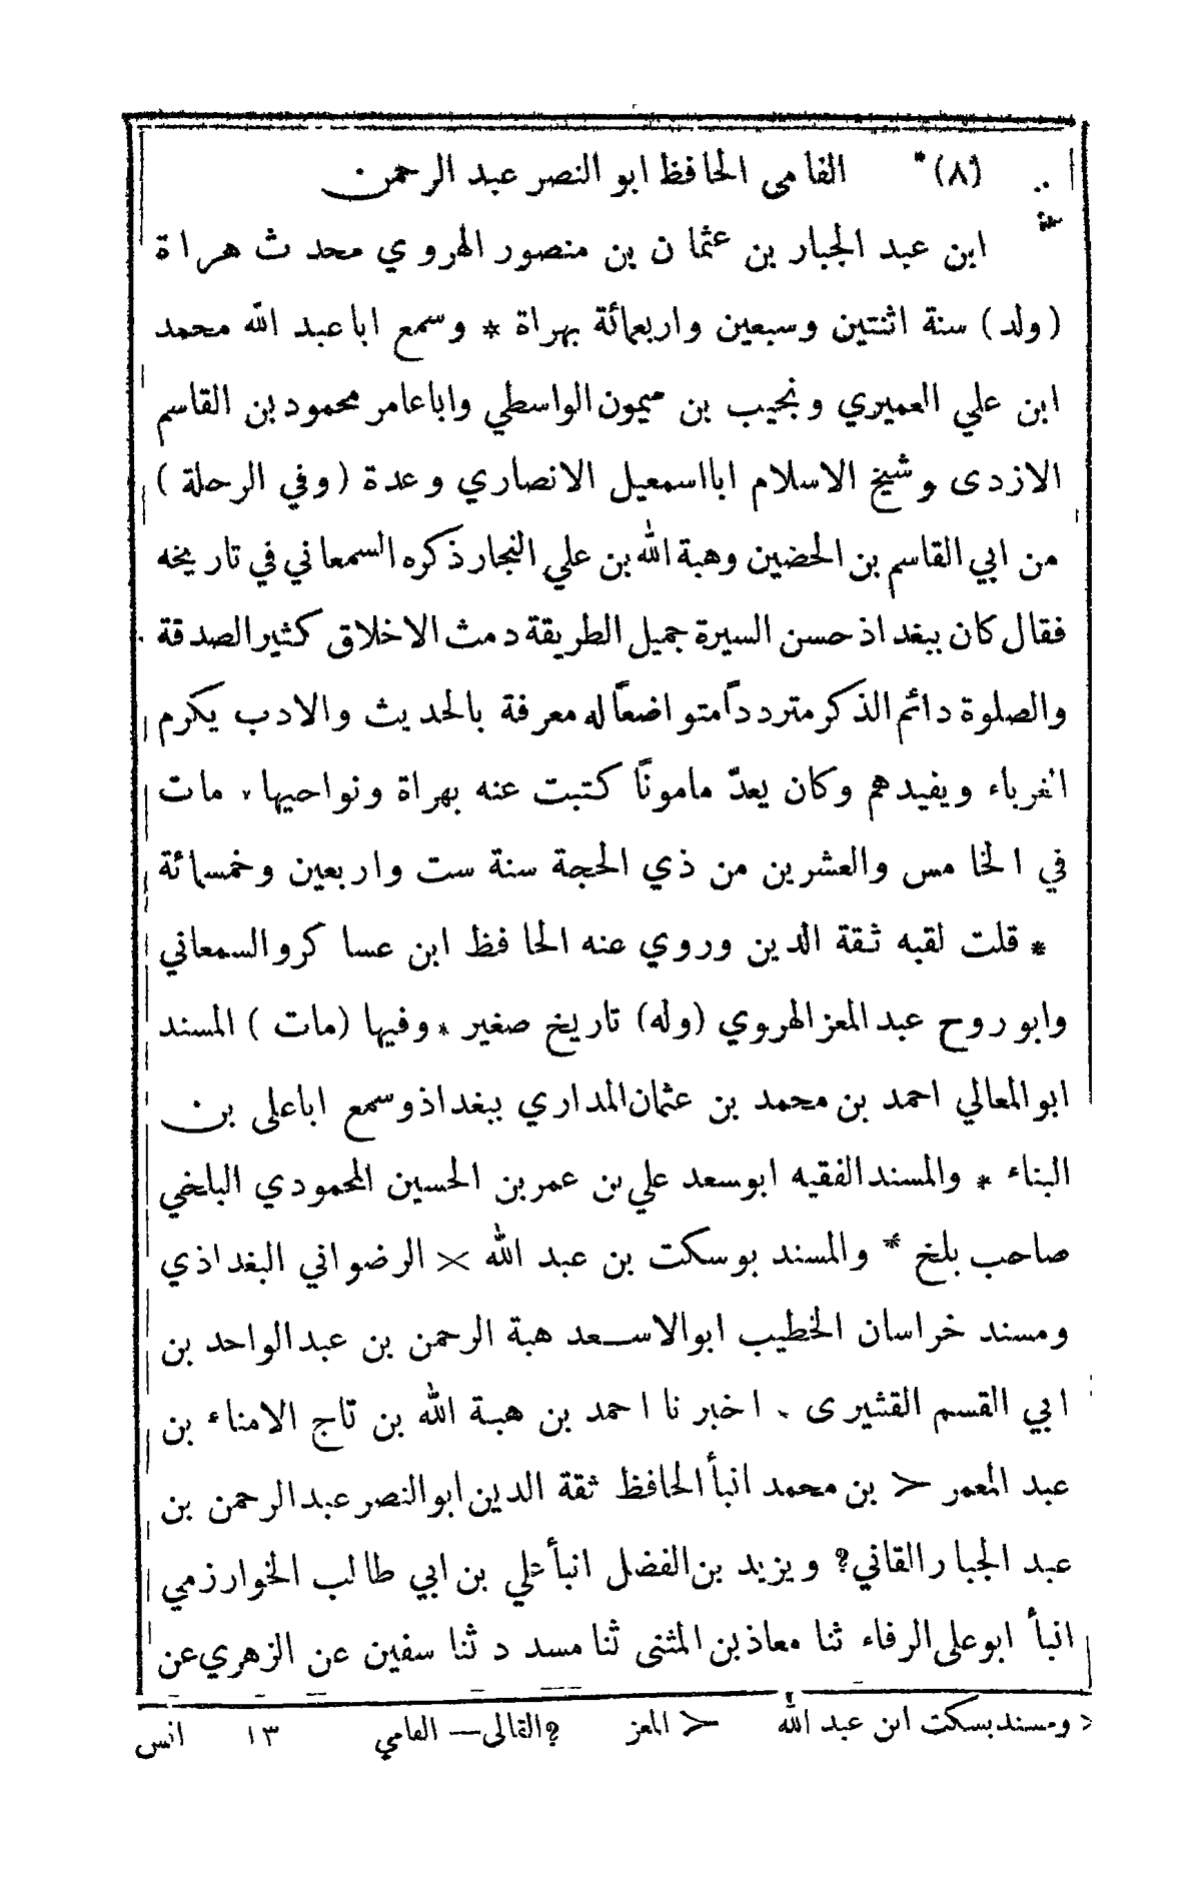 (٨) * الفامى الحافظ ابو النصر عبد الرحمن
ابن عبد الجبار بن عثمان بن منصور الهروي محدث هراة
(ولد) سنة اثنتين وسبعين واربعمائة بهراة * وسمع ابا عبد الله محمد
ابن علي العميري ونجيب بن ميمون الواسطي وابا عامر محمود بن القاسم
الازدى وشيخ الاسلام ابا اسمعيل الانصاري وعدة (وفي الرحلة)
من ابي القاسم بن الحضين وهبة الله بن علي النجار ذكره السمعاني في تاريخه
فقال كان ببغداذ حسن السيرة جميل الطريقة دمث الاخلاق كثير الصدقة
والصلوة دائم الذكر مترددًا متواضعًا له معرفة بالحديث والادب يكرم
الغرباء ويفيدهم وكان يعدّ مامونًا كتبت عنه بهراة ونواحيها * مات
في الخامس والعشرين من ذي الحجة سنة ست واربعين وخمسمائة
* قلت لقبه ثقة الدين وروي عنه الحافظ ابن عساكر والسمعاني
وابو روح عبد المعز الهروي (وله) تاريخ صغير * وفيها (مات) المسند
ابو المعالي احمد بن محمد بن عثمان المداري ببغداذ وسمع ابا على بن
البناء * والمسند الفقيه ابو سعد علي بن عمر بن الحسين المحمودي البلخي
صاحب بلخ * والمسند بوسكت بن عبد الله × الرضواني البغداذي
ومسند خراسان الخطيب ابو الاسعد هبة الرحمن بن عبد الواحد بن
ابي القسم القثيرى . اخبرنا احمد بن هبة الله بن تاج الامناء بن
عبد المعمر < بن محمد انبأ الحافظ ثقة الدين ابو النصر عبد الرحمن بن
عبد الجبار القاني؟ ويزيد بن الفضل انبأ علي بن ابي طالب الخوارزمي
انبأ ابو على الرفاء ثنا معاذ بن المثنى ثنا مسدد ثنا سفين عن الزهري عن
ومسند بسكت ابن عبد الله < المعز ؟ القالى — الفامي ١٣ انس